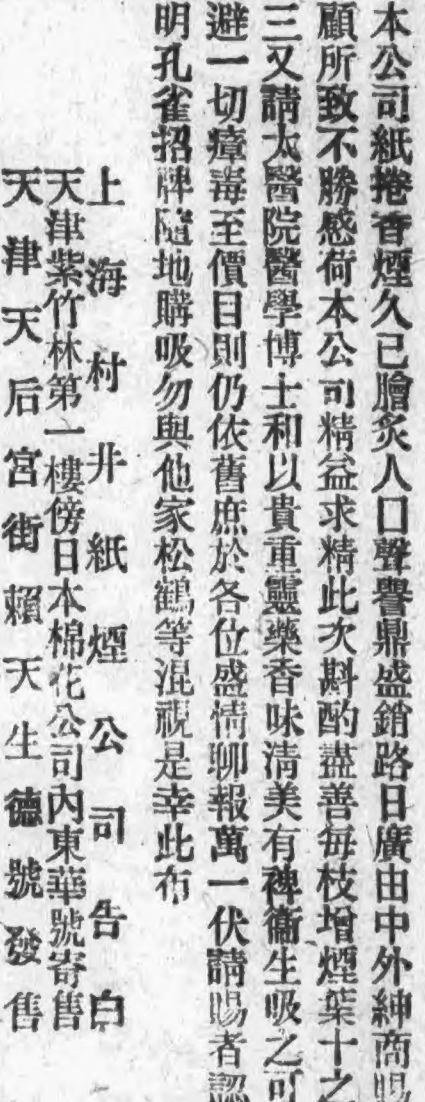 本公司紙捲香煙久已膾炙人口聲譽鼎盛銷路日廣由中外紳商賜
顧所致不勝感荷本公司精益求精此次斟酌盡善每枝增煙葉十之
三又請太醫院醫學博士和以貴重靈藥香味清美有裨衞生吸之可
避一切瘴毒至價目則仍依舊庶於各位盛情聊報萬一伏請賜者認
明孔雀招牌隨地購吸勿與他家松鶴等混視是幸此布
上海村井紙煙公司告白
天津紫竹林第一樓傍日本棉花公司內東華號寄售
天津天后宮街賴天生德號發售